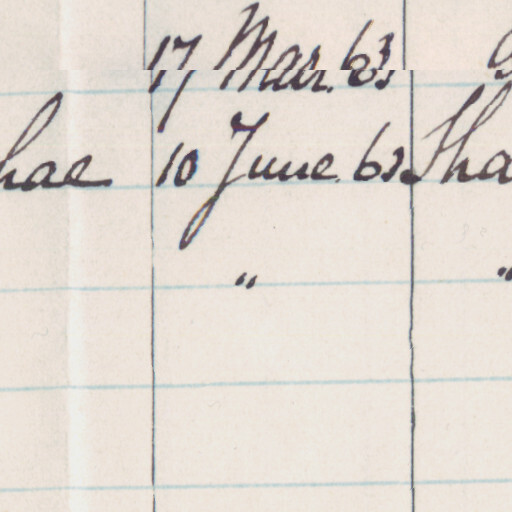 17 Mar. 63
hae 10 June. 63 Sha
" "